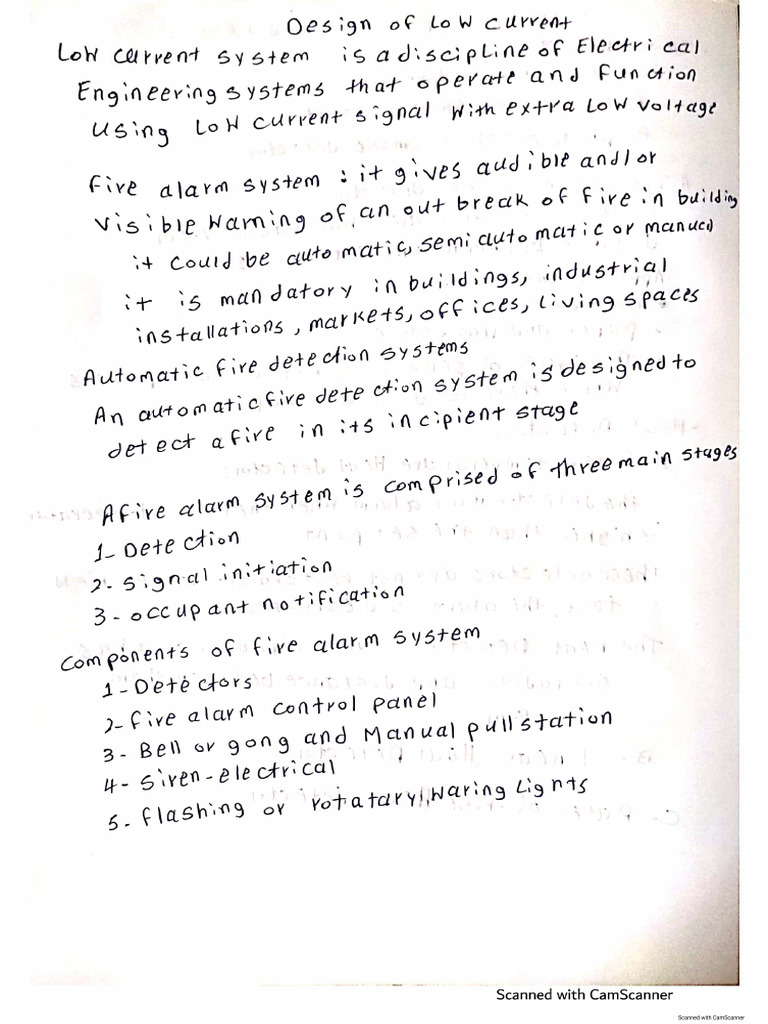 Design of Low current
Low current system is a discipline of Electrical
Engineering systems that operate and function
using Low current signal with extra Low voltage
Fire alarm system : it gives audible and/or
visible Warning of an out break of fire in building
it could be automatic, semi automatic or manual
it is mandatory in buildings, industrial
installations, markets, offices, living spaces
Automatic fire detection systems
An automatic fire detection system is designed to
detect a fire in its incipient stage
A fire alarm system is comprised of three main stages
1- Detection
2- signal initiation
3- occupant notification
components of fire alarm system
1- Detectors
2- fire alarm control panel
3- Bell or gong and Manual pull station
4- Siren-electrical
5- flashing or rotatary Waring Lignts
Scanned with CamScanner
Scanned with CamScanner